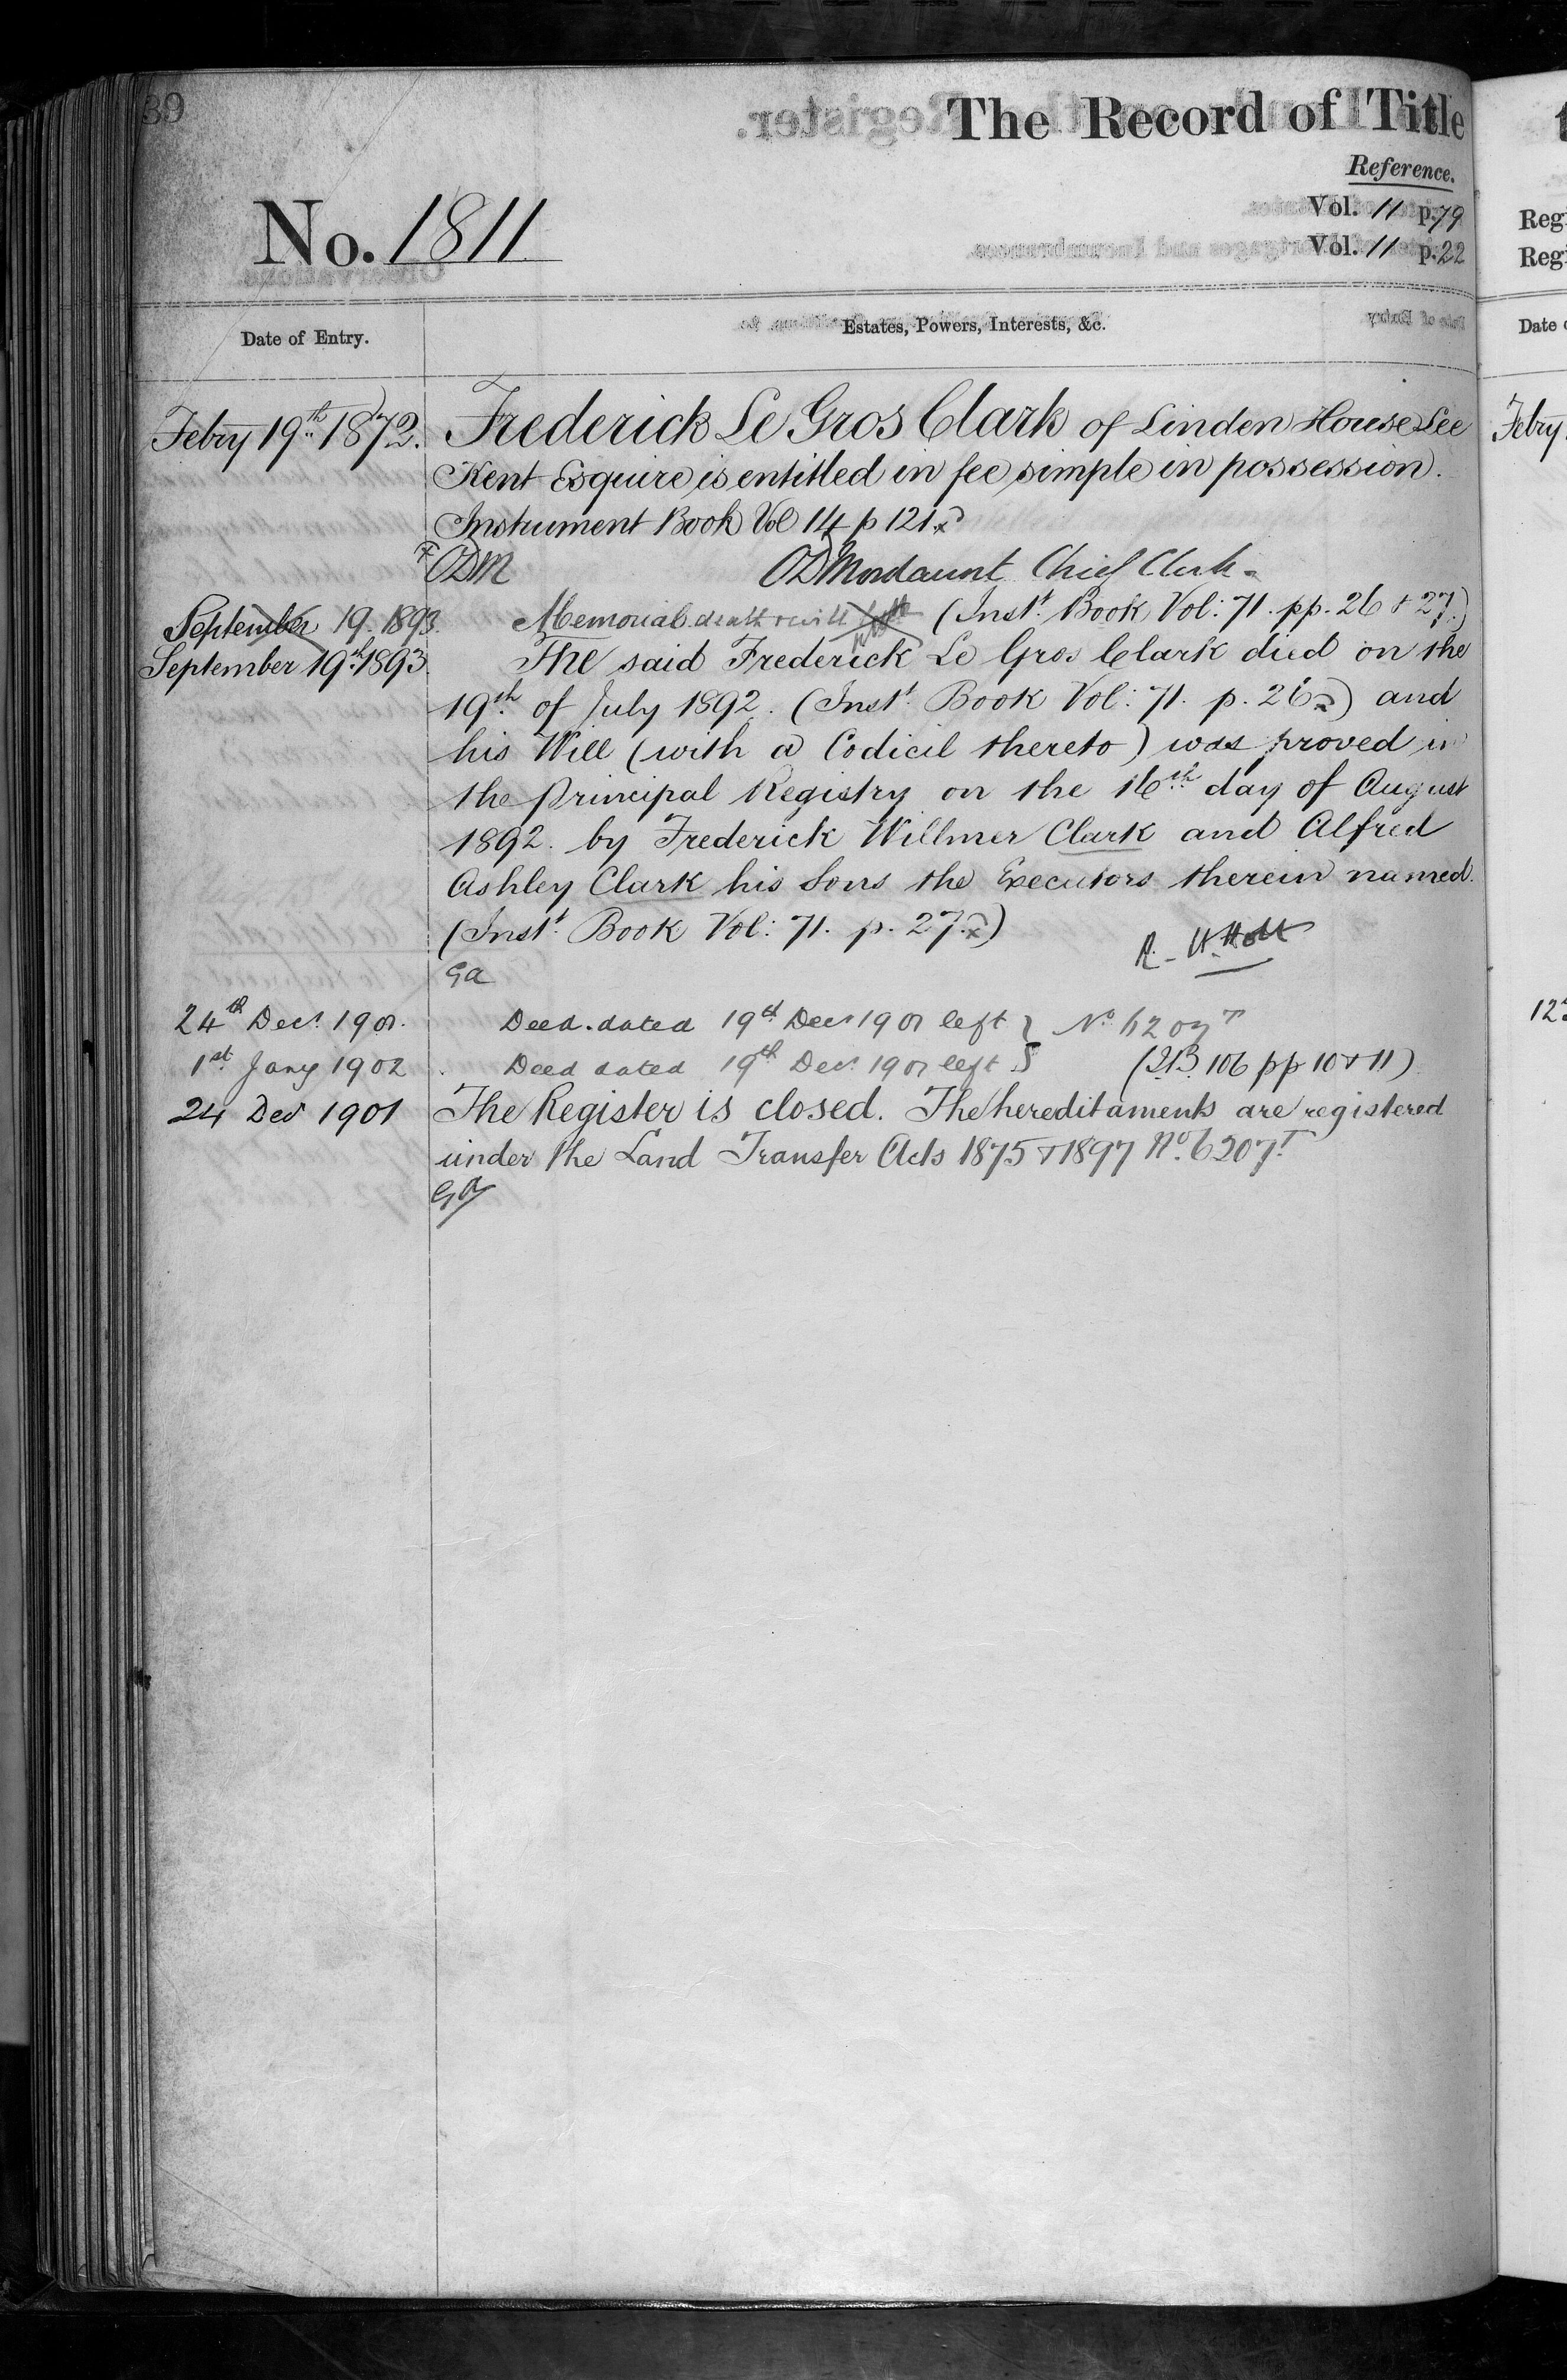 39
The Record of Title
Reference.
No. 1811
Vol. 11 p. 79
Vol. 11 p. 22
Reg
Reg
Date of Entry.
Estates, Powers, Interests, &c.
Date
Febry 19th 1872. Frederick Le Gros Clark of Linden House Lee
Febry
Kent Esquire is entitled in fee simple in possession.
Instrument Book Vol 14 p 121.
ODM
ODMordaunt Chief Clerk
September 19. 1893. Memorial death & will left (Instt. Book Vol: 71. pp. 26 & 27.)
September 19th 1893. The said Frederick Le Gros Clark died on the
19th of July 1892. (Instt. Book Vol: 71. p. 26) and
his Will (with a Codicil thereto) was proved in
the Principal Registry on the 16th day of August
1892. by Frederick Willmer Clark and Alfred
Ashley Clark his Sons the Executors therein named.
(Instt. Book Vol: 71. p. 27.)
R. W. Holt
Ga
24th Decr. 1901. Deed dated 19th Decr 1901 left } No. 6207T
1st Jany 1902 Deed dated 19th Decr. 1901 left } (2B 106 pp 10 & 11)
24 Decr 1901 The Register is closed. The hereditaments are registered
under the Land Transfer Acts 1875 & 1897 No. 6207T
Ga